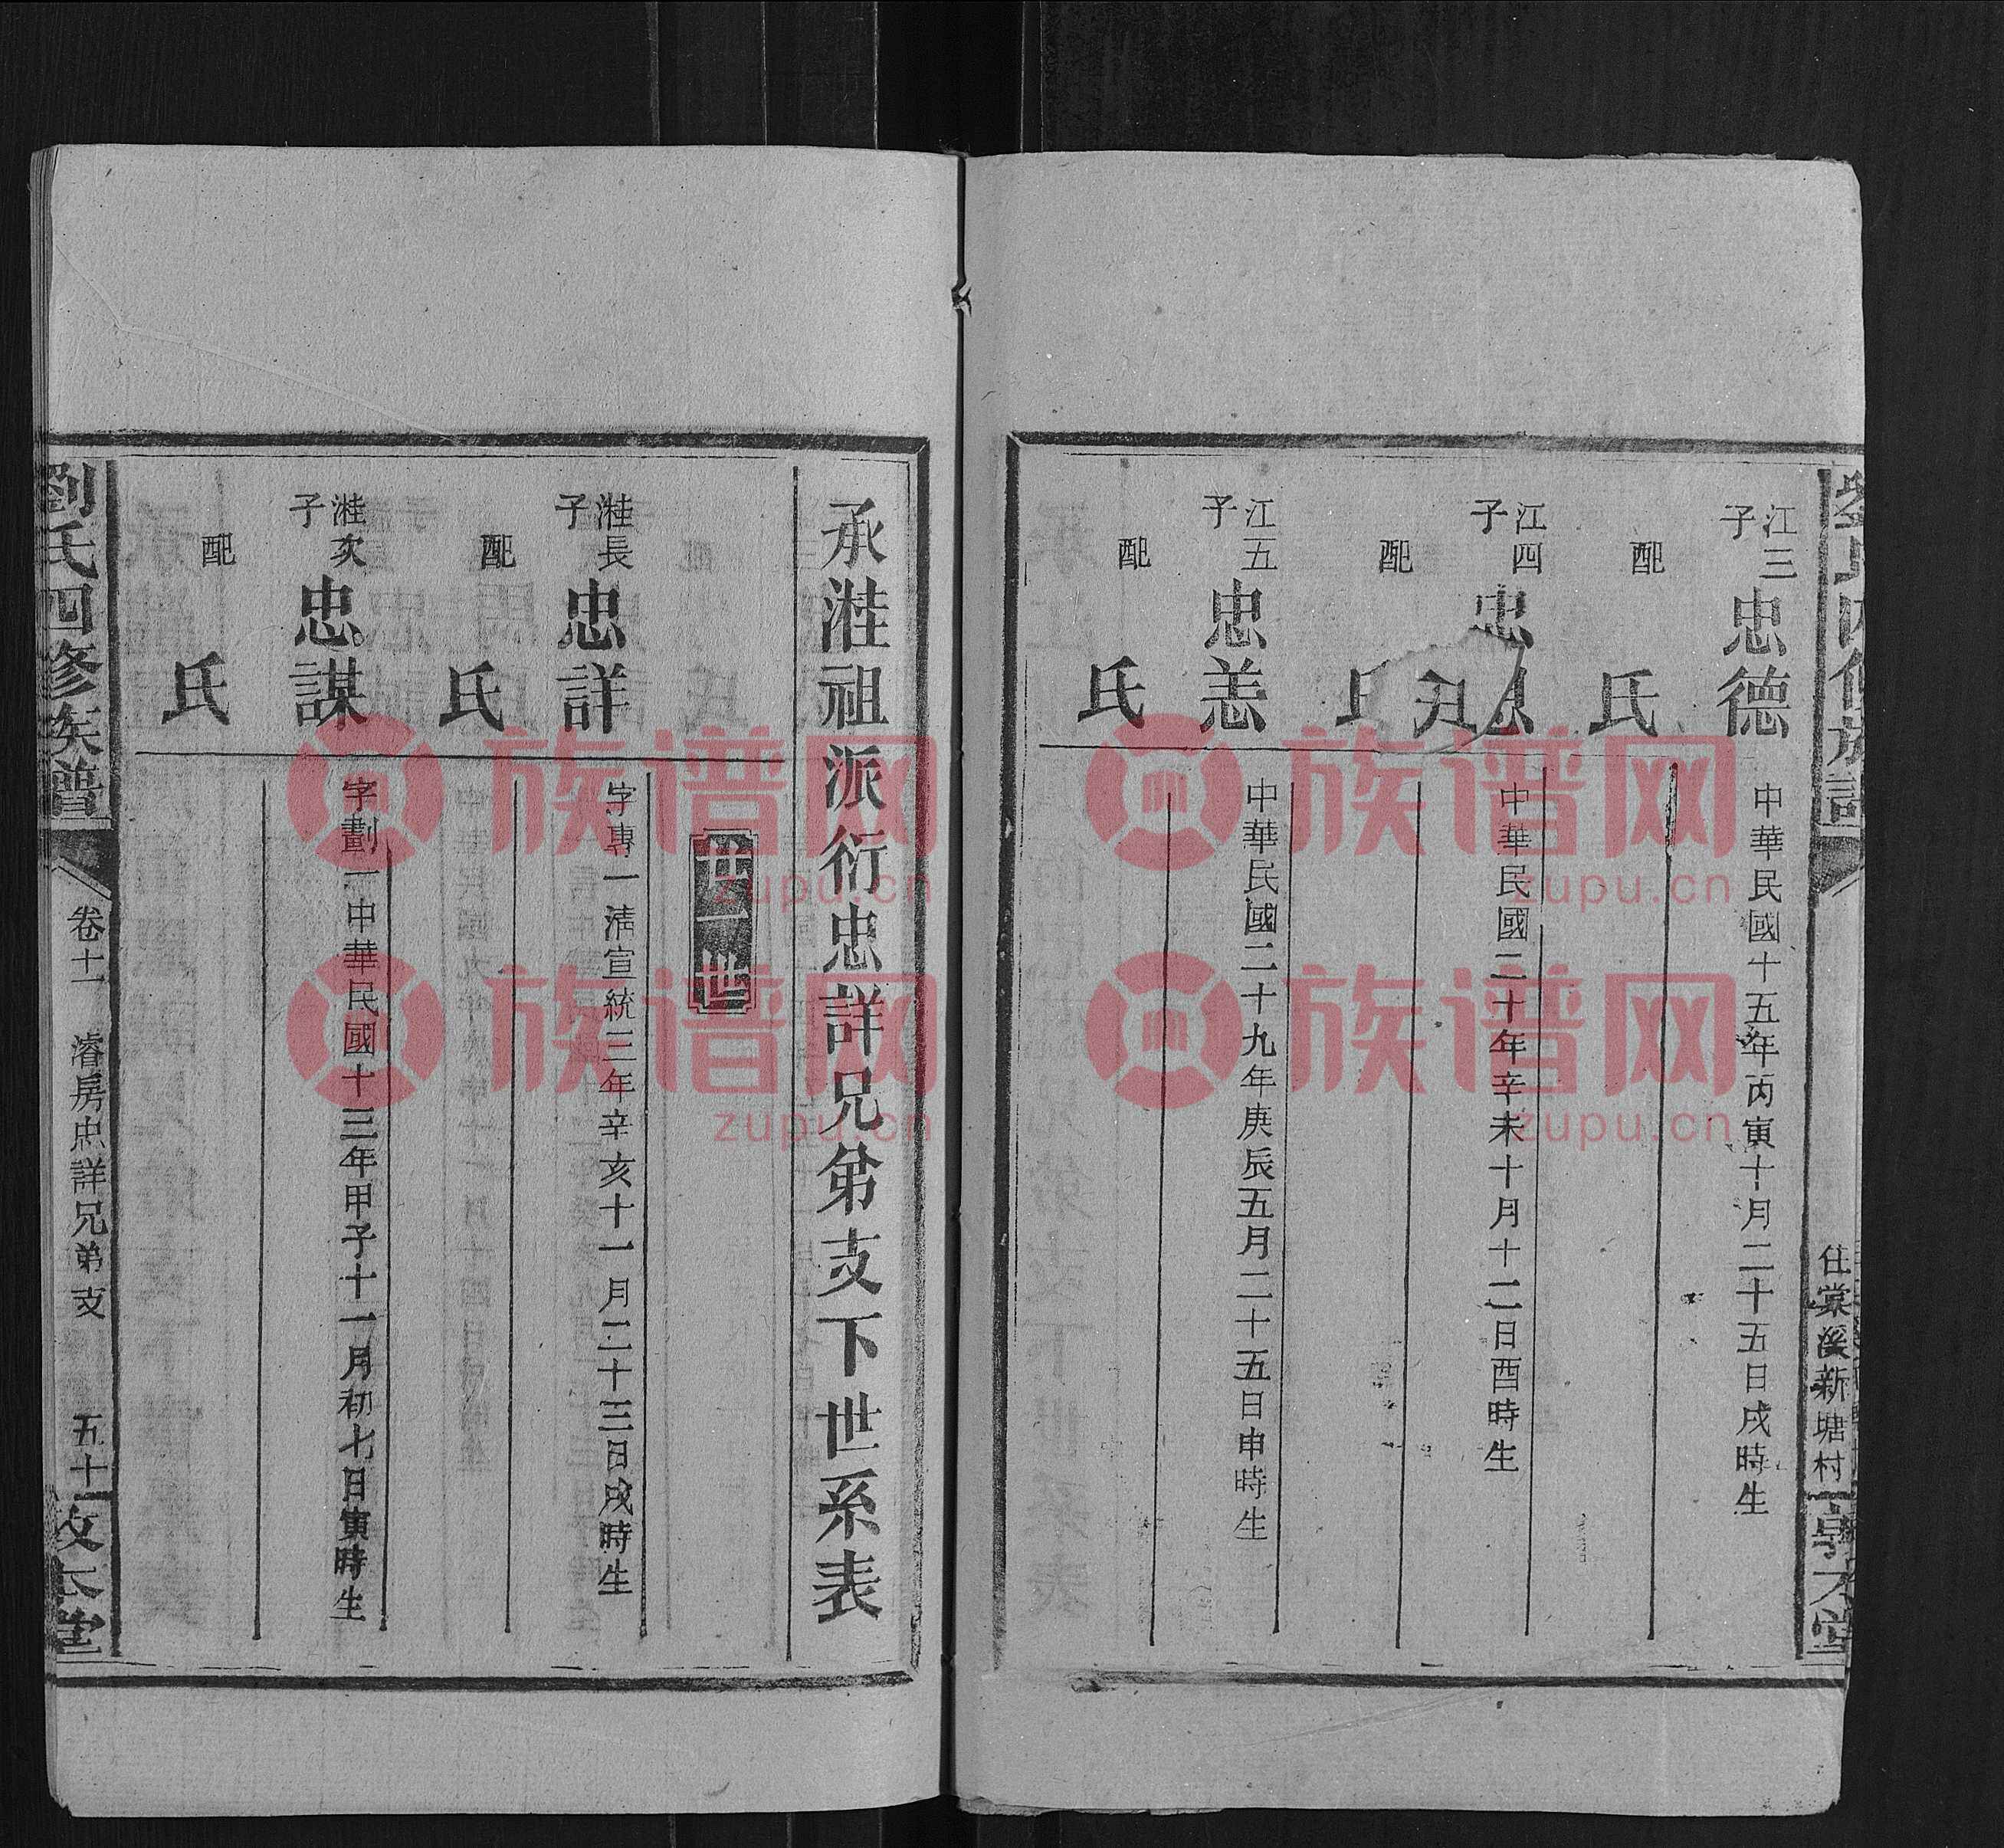 江三子 忠德
中華民國十五年丙寅十月二十五日戌時生
配 氏
江四子 忠
中華民國二十年辛未十月十二日酉時生
配
江五子 忠恙
中華民國二十九年庚辰五月二十五日申時生
配 氏
住棠溪新塘村
承溎祖派衍忠詳兄弟支下世系表
世
溎長子 忠詳
字專一清宣統三年辛亥十一月二十三日戌時生
配 氏
溎次子 忠謀
字劃一中華民國十三年甲子十一月初七日寅時生
配 氏
劉氏四修族譜
卷十一
濬房忠詳兄弟支
五十一
族谱网
zupu.cn
族谱网
zupu.cn
族谱网
zupu.cn
族谱网
zupu.cn